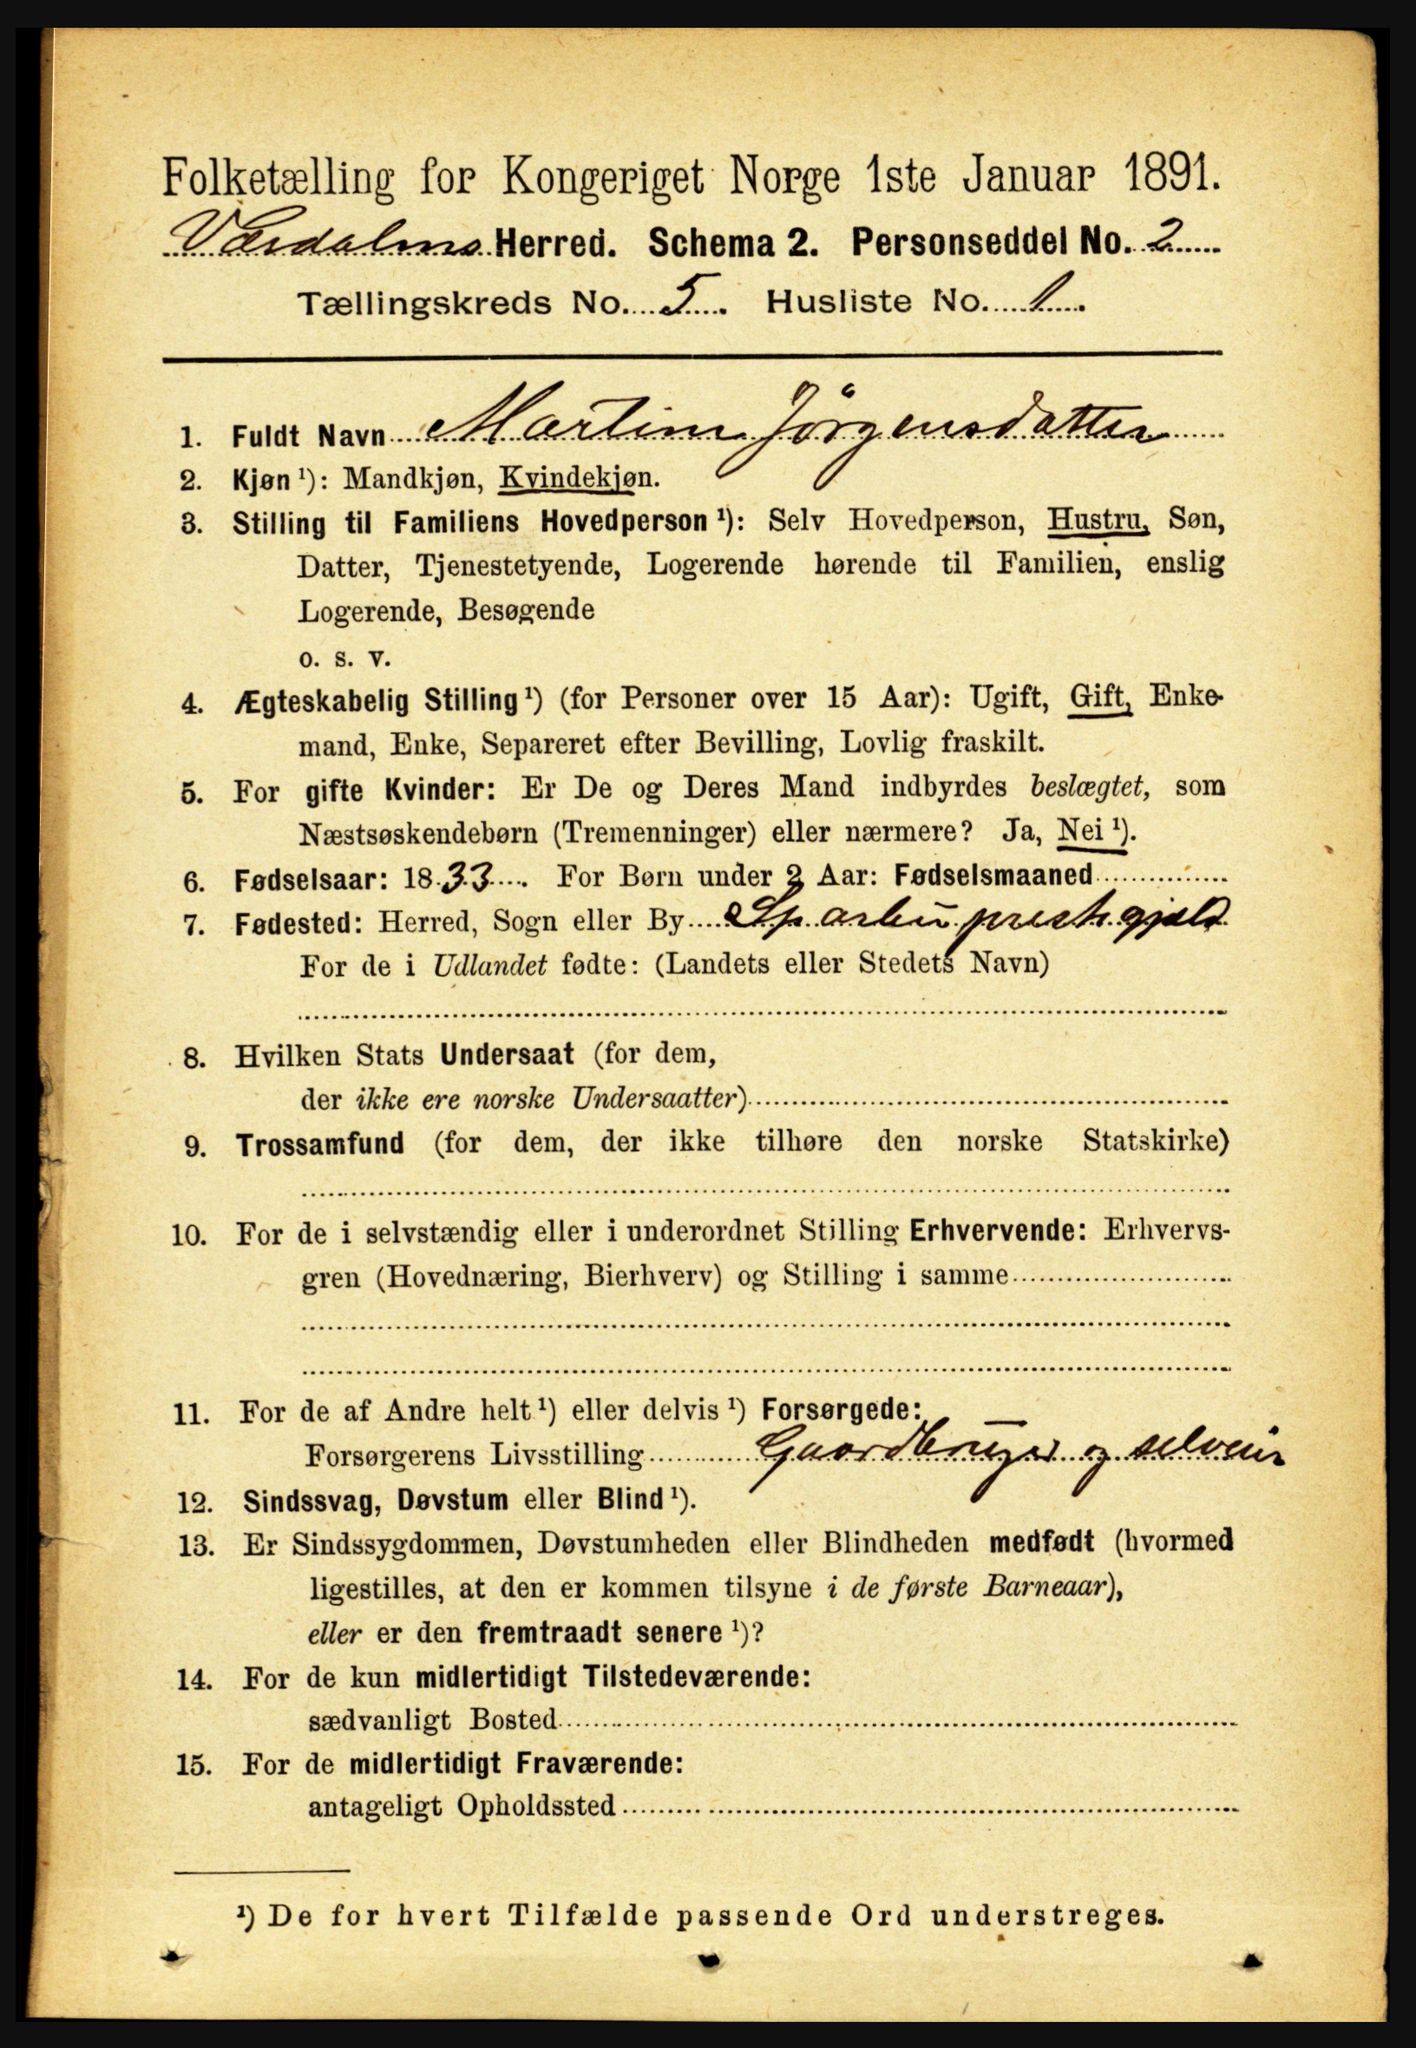 Folketælling for Kongeriget Norge 1ste Januar 1891.
Værdalens Herred. Schema 2. Personseddel No. 2
Tællingskreds No. 5. Husliste No. 1.
1. Fuldt Navn Martine Jörgensdatter
2. Kjøn ¹): Mandkjøn, Kvindekjøn.
3. Stilling til Familiens Hovedperson ¹): Selv Hovedperson, Hustru, Søn,
Datter, Tjenestetyende, Logerende hørende til Familien, enslig
Logerende, Besøgende
o. s. v.
4. Ægteskabelig Stilling ¹) (for Personer over 15 Aar): Ugift, Gift, Enke-
mand, Enke, Separeret efter Bevilling, Lovlig fraskilt.
5. For gifte Kvinder: Er De og Deres Mand indbyrdes beslægtet, som
Næstsøskendebørn (Tremenninger) eller nærmere? Ja, Nei ¹).
6. Fødselsaar: 1833. For Børn under 2 Aar: Fødselsmaaned
7. Fødested: Herred, Sogn eller By Sparbu prestegjeld
For de i Udlandet fødte: (Landets eller Stedets Navn)
8. Hvilken Stats Undersaat (for dem,
der ikke ere norske Undersaatter)
9. Trossamfund (for dem, der ikke tilhøre den norske Statskirke)
10. For de i selvstændig eller i underordnet Stilling Erhvervende: Erhvervs-
gren (Hovednæring, Bierhverv) og Stilling i samme
11. For de af Andre helt ¹) eller delvis ¹) Forsørgede:
Forsørgerens Livsstilling Gaardbruger og selveier
12. Sindssvag, Døvstum eller Blind ¹).
13. Er Sindssygdommen, Døvstumheden eller Blindheden medfødt (hvormed
ligestilles, at den er kommen tilsyne i de første Barneaar),
eller er den fremtraadt senere ¹)?
14. For de kun midlertidigt Tilstedeværende:
sædvanligt Bosted
15. For de midlertidigt Fraværende:
antageligt Opholdssted
¹) De for hvert Tilfælde passende Ord understreges.